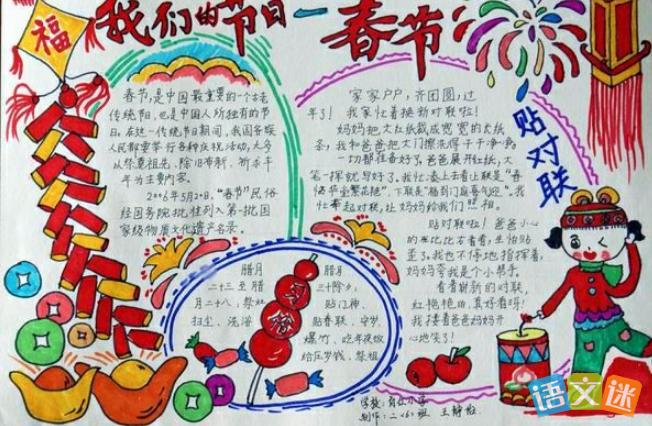 福
我们的节日—春节
春节,是中国最重要的一个古老
传统节日,也是中国人所独有的节
日。在这一传统节日期间,我国各族
人民都要举行各种庆祝活动,大多
以祭祖先、除旧布新、祈求丰
年为主要内容。
2006年5月20日,“春节”民俗
经国务院批准列入第一批国
家级物质文化遗产名录。
家家户户,齐团圆,过
年了!我家忙着换新对联啦!
妈妈把大红纸裁成宽宽的大纸
条,我和爸爸把大门擦洗得干干净净,
一切都在备好了,爸爸展开红纸,大
笔一挥就写好了。我忙
上去看上联是“春
下联是“福到门庭喜气迎”。我
忙
起对联,让妈妈给我们照相。
贴对联
贴对联啦!爸爸小心
左看看,生怕贴
歪了。我也不停地指挥着,
妈妈夸我是个小帮手。
看着崭新的对联,
红艳艳的,真好看呀!
我搂着爸爸妈妈开
心地笑了!
腊月
二十三至腊
月二十八,祭灶
扫尘、洗浴
冰糖
腊月
三十除夕,
贴门神、
贴春联、守岁、
爆竹、吃年夜饭
给压岁钱、祭祖
学校:
小学
制作:二(6)班 王
语文迷